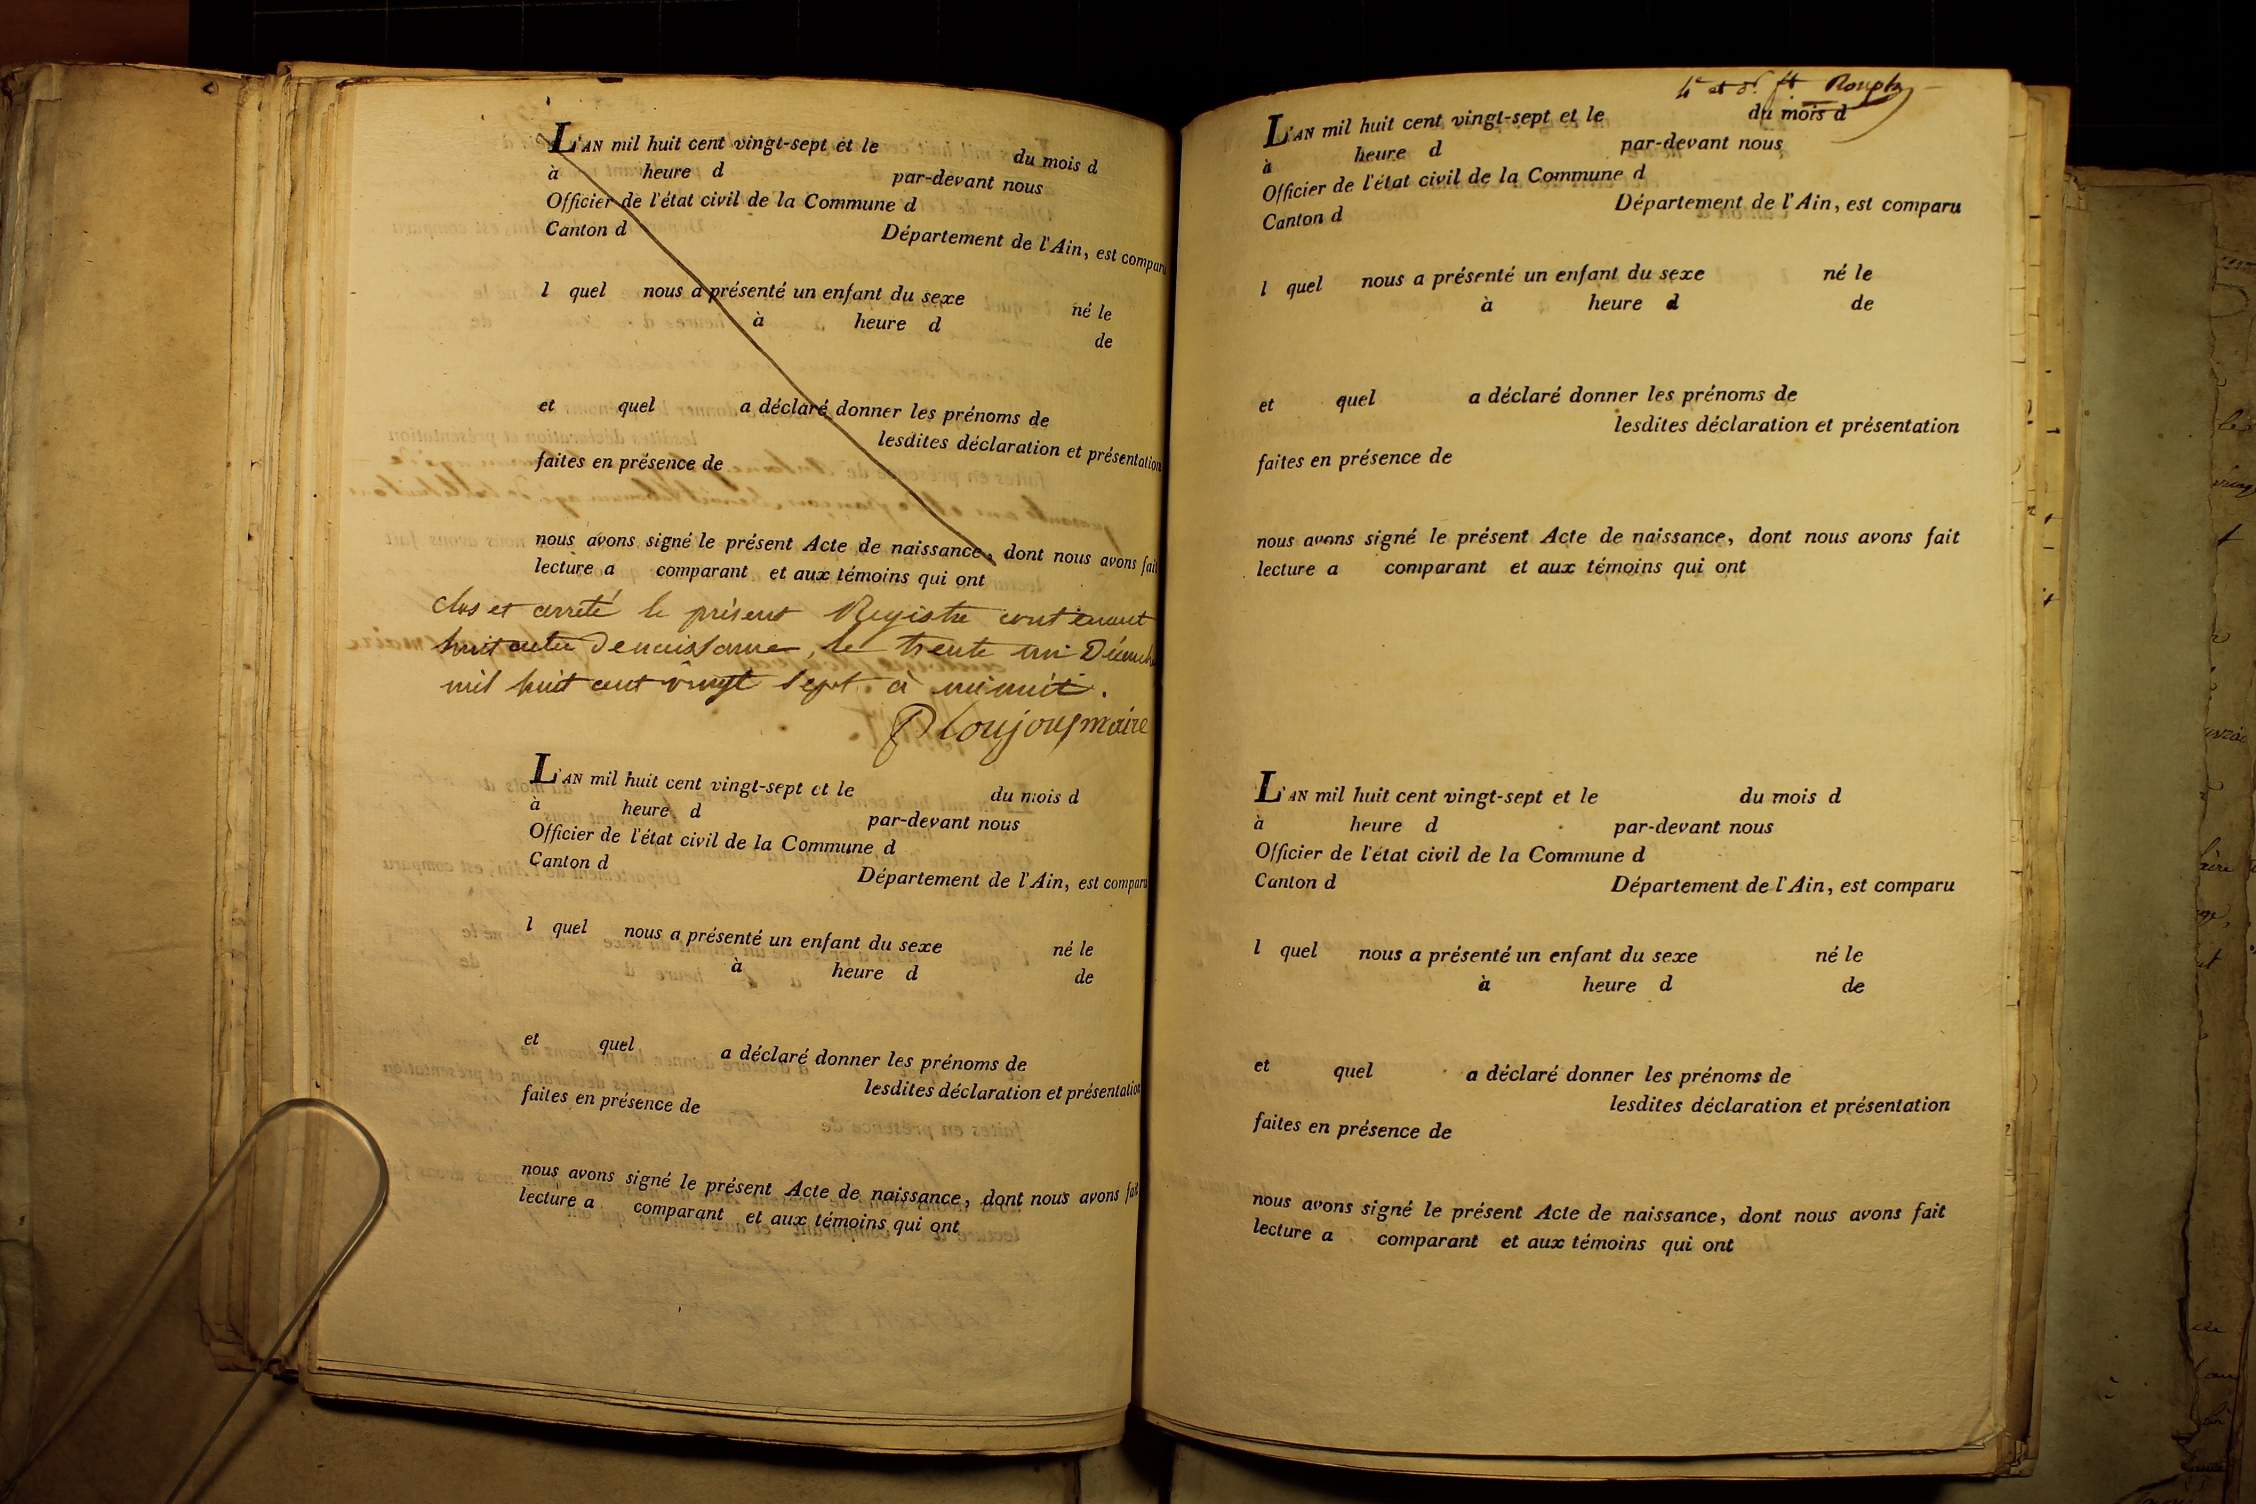 L'AN mil huit cent vingt-sept et le du mois d
à heure d par-devant nous
Officier de l'état civil de la Commune d
Canton d Département de l'Ain, est comparu
l quel nous a présenté un enfant du sexe né le
à heure d de
et quel a déclaré donner les prénoms de
lesdites déclaration et présentation
faites en présence de
nous avons signé le présent Acte de naissance, dont nous avons fait
lecture a comparant et aux témoins qui ont
clos et arrêté le présent Registre contenant
huit actes de naissance, le trente un Décembre
mil huit cent vingt sept à minuit.
maire
L'AN mil huit cent vingt-sept et le du mois d
à heure d par-devant nous
Officier de l'état civil de la Commune d
Canton d Département de l'Ain, est comparu
l quel nous a présenté un enfant du sexe né le
à heure d de
et quel a déclaré donner les prénoms de
lesdites déclaration et présentation
faites en présence de
nous avons signé le présent Acte de naissance, dont nous avons fait
lecture a comparant et aux témoins qui ont
4e et d. ft
L'AN mil huit cent vingt-sept et le du mois d
à heure d par-devant nous
Officier de l'état civil de la Commune d
Canton d Département de l'Ain, est comparu
l quel nous a présenté un enfant du sexe né le
à heure d de
et quel a déclaré donner les prénoms de
lesdites déclaration et présentation
faites en présence de
nous avons signé le présent Acte de naissance, dont nous avons fait
lecture a comparant et aux témoins qui ont
L'AN mil huit cent vingt-sept et le du mois d
à heure d par-devant nous
Officier de l'état civil de la Commune d
Canton d Département de l'Ain, est comparu
l quel nous a présenté un enfant du sexe né le
à heure d de
et quel a déclaré donner les prénoms de
lesdites déclaration et présentation
faites en présence de
nous avons signé le présent Acte de naissance, dont nous avons fait
lecture a comparant et aux témoins qui ont